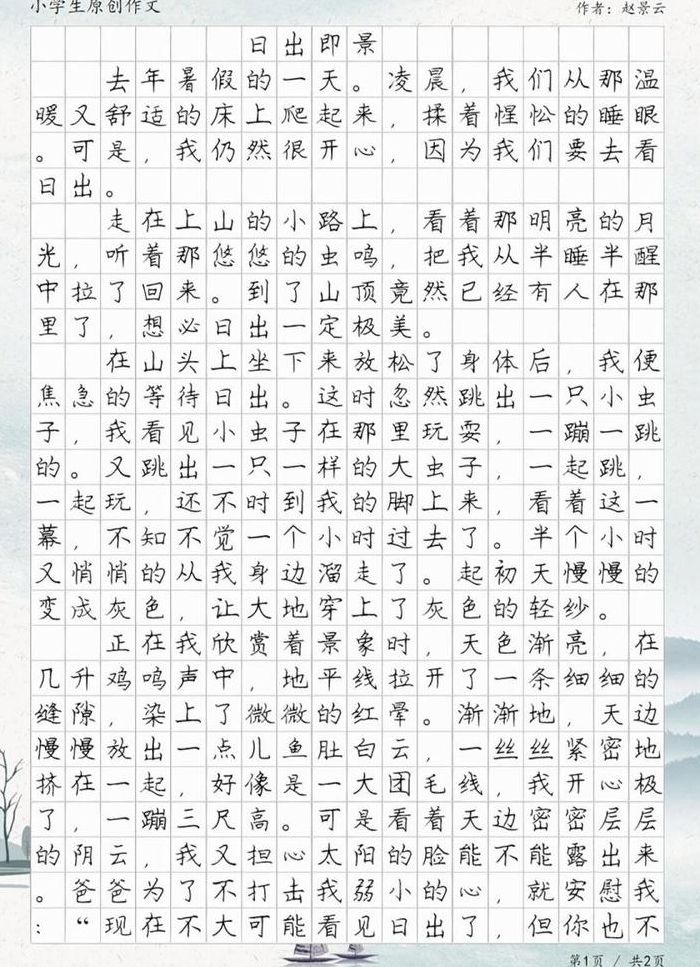 小学生原创作文
作者：赵景云
日出即景
去年暑假的一天。凌晨，我们从那温
暖又舒适的床上爬起来，揉着惺忪的睡眼
。可是，我仍然很开心，因为我们要去看
日出。
走在上山的小路上，看着那明亮的月
光，听着那悠悠的虫鸣，把我从半睡半醒
中拉了回来。到了山顶竟然已经有人在那
里了，想必日出一定极美。
在山头上坐下来放松了身体后，我便
焦急的等待日出。这时忽然跳出一只小虫
子，我看见小虫子在那里玩耍，一蹦一跳
的。又跳出一只一样的大虫子，一起跳，
一起玩，还不时到我的脚上来，看着这一
幕，不知不觉一个小时过去了。半个小时
又悄悄的从我身边溜走了。起初天慢慢的
变成灰色，让大地穿上了灰色的轻纱。
正在我欣赏着景象时，天色渐亮，在
几升鸡鸣声中，地平线拉开了一条细细的
缝隙，染上了微微的红晕。渐渐地，天边
慢慢放出一点儿鱼肚白云，一丝丝紧密地
挤在一起，好像是一大团毛线，我开心极
了，一蹦三尺高。可是看着天边密密层层
的阴云，我又担心太阳的脸能不能露出来
。爸爸为了不打击我弱小的心，就安慰我
：“现在不大可能看见日出了，但你也不
第1页 / 共2页